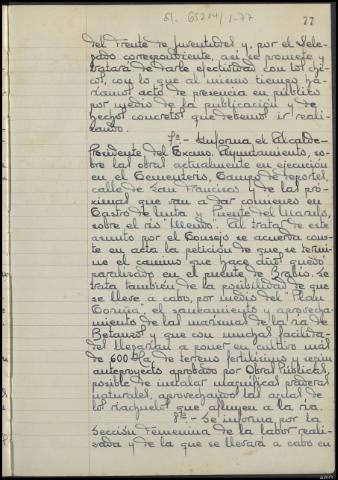 77
del Frente de Juventudes y, por el Dele-
gado correspondiente, así se promete y
tratará de darle efectividad con los chi-
cos, con lo que al mismo tiempo ha-
ríamos acto de presencia en público
por medio de la publicación y de
hechos concretos que debemos ir reali-
zando.
7ª.- Informa el Alcalde-
Presidente del Excmo. Ayuntamiento, so-
bre las obras actualmente en ejecución
en el Cementerio, Campo de deportes,
calle de San Francisco y de las pró-
ximas que van a dar comienzo en
Castro de Unta y Puente del Maruls,
sobre el río "Mendo". Al tratar de este
asunto por el Consejo se acuerda cons-
te en acta la petición de que se termi-
ne el camino que hace años quedó
paralizado en el puente de Brabío. Se
trata también de la posibilidad de que
se lleve a cabo, por medio del "Plan
Coruña", el saneamiento y aprovecha-
miento de las marismas de la ría de
Betanzos y que con muchas facilida-
des llegarían a poner en cultivo más
de 600 Ha. de terreno fertilísimo y según
anteproyecto aprobado por Obras Públicas,
posible de instalar magníficas praderas
naturales, aprovechando las aguas de
los riachuelos que afluyen a la ría.
8ª.- Se informa por la
Sección Femenina de la labor reali-
zada y de la que se llevará a cabo en